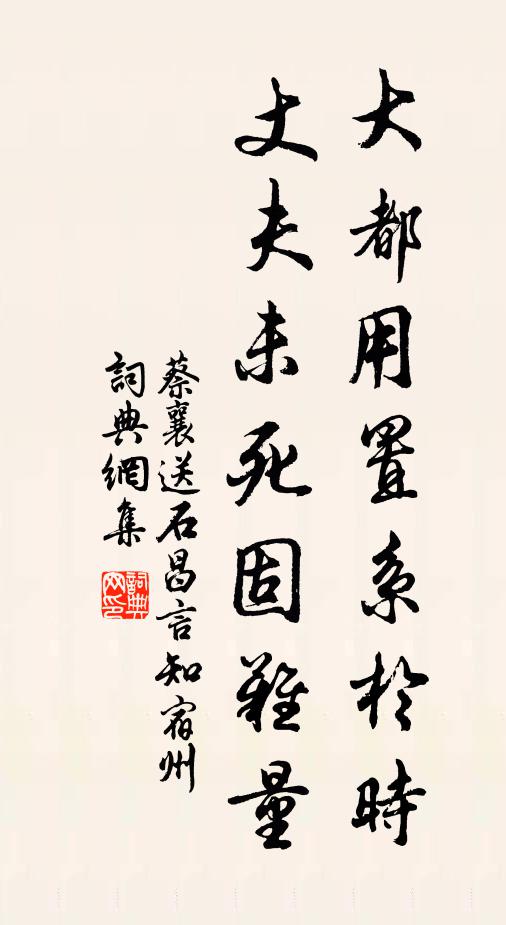 大都用置系於時
丈夫未死固難量
蔡襄送石昌言知宿州
詞典網集
詞典网印